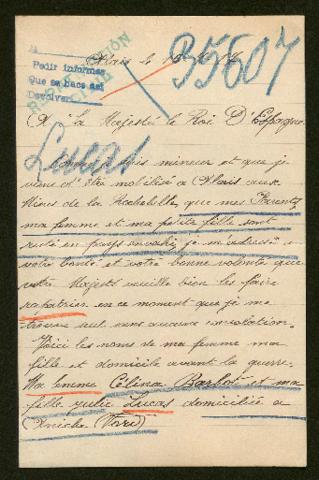 Pedir informes
Que se haga así
Devolver
REPATRIACIÓN
35607
Alais le
A Sa Majesté le Roi D'Espagne
Lucas
suis mineur et que je
viens d'être mobilisé a Alais aux
Mines de la Rochebelle, que mes Parents
ma femme et ma petite fille sont
resté en pays envahi, je m'adresse a
votre bonté et votre bonne volonté que
votre Majesté veuille bien les faire
rapatrier en ce moment que je me
trouve seul sans aucune consolation.
Voici les noms de ma femme ma
fille et domicile avant la guerre.
Ma femme Célina Barbot et ma
fille Julie Lucas domiciliée a
Aniche (Nord)